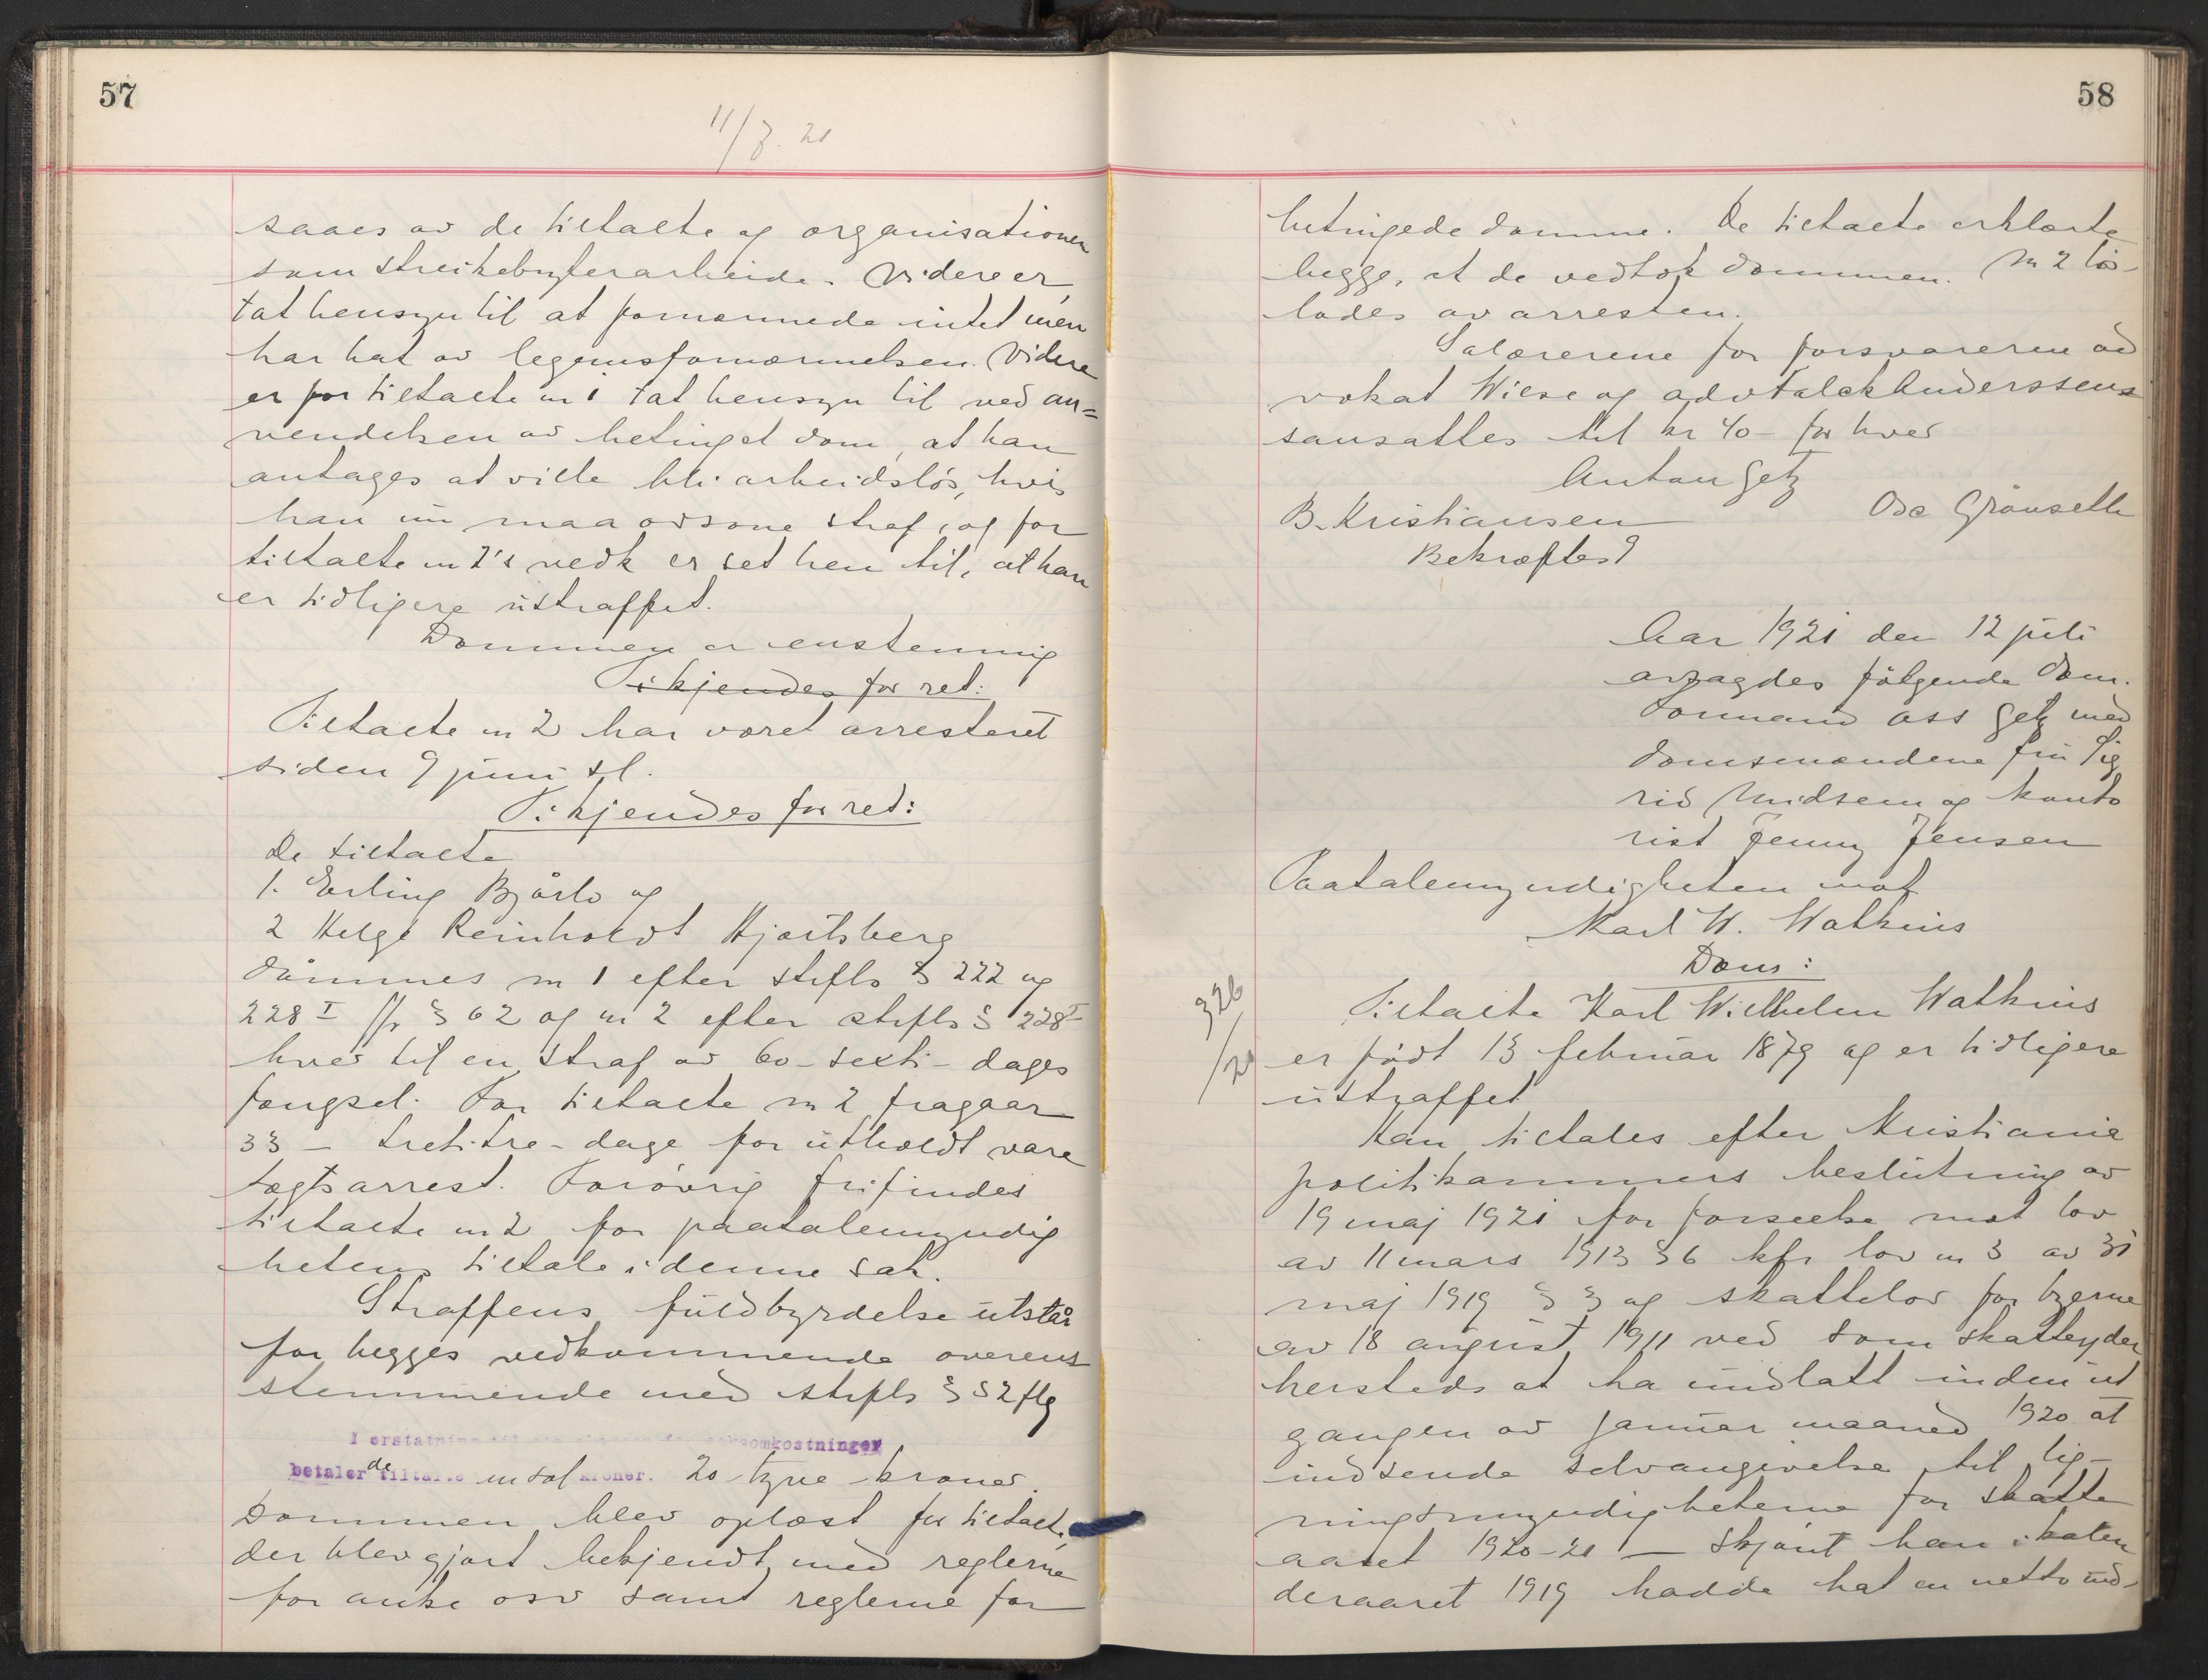 57
11/7. 21
saaes av de tiltalte og organisationen
som streikebryterarbeide. Videre er
tat hensyn til at fornærmede intet mén
har hat av legemsfornærmelsen. Videre
er for tiltalte nr 1 tat hensyn til ved an=
vendelsen av betinget dom, at han
antages at ville bli arbeidsløs, hvis
han nu maa avsone straf, og for
tiltalte nr 2's vedk er set hen til, at han
er tidligere ustraffet.
Dommen er enstemmig
Ti kjendes for ret:
Tiltalte nr 2 har været arrestert
siden 9 juni sl.
Ti kjendes for ret:
De tiltalte
1. Erling Bjørlo og
2 Helge Reinholdt Hjortsberg
dømmes nr 1 efter strfls § 222 og
228 I jfr § 62 og nr 2 efter strfls § 228 I
hver til en straf av 60 - seksti - dages
fængsel. For tiltalte nr 2 fragaar
33 - tretitre - dage for utholdt vare
tægtsarrest. Forøvrig frifindes
tiltalte nr 2 for paatalemyndig
hetens tiltale i denne sak.
Straffens fuldbyrdelse utstår
for begges vedkommende overens
stemmende med strfls § 52 flg
I erstatning til det offentlige for saksomkostninger
betaler de tiltalte in sol kroner. 20 tyve kroner.
Dommen blev oplæst for tiltalte,
der blev gjort bekjendt med reglerne
for anke osv samt reglerne for
58
betingede domme. De tiltalte erklærte
begge, at de vedtok dommen. Nr 2 løs-
lodes av arresten.
Salærerene for forsvarerne ad
vokat Wiese og adv Falck Anderssens
sansattes til kr 40 - for hver
Anton Getz
B. Kristiansen Osc Grønseth
Bekræftes
Aar 1921 den 12 juli
avsagdes følgende dom.
Formand ass Getz med
domsmændene fru Sig
rid Midsem og konto
rist Jenny Jensen
Paatalemyndigheten mot
Karl W. Wathnius
Dom:
326
/20
Tiltalte Karl Wilhelm Wathnius
er født 13 februar 1879 og er tidligere
ustraffet
Han tiltales efter Kristiania
politikammers beslutning av
19 maj 1921 for forseelse mot lov
av 11 mars 1913 § 6 kfr lov nr 3 av 31
maj 1919 § 3 og skattelov for byerne
av 18 august 1911 ved som skatteyder
hersteds at ha undlatt inden ut
gangen av januar maaned 1920 at
indsende selvangivelse til lig-
ningsmyndigheterne for skatte
aaret 1920-21 - skjønt han i kalen
deraaret 1919 hadde hat en netto ind-